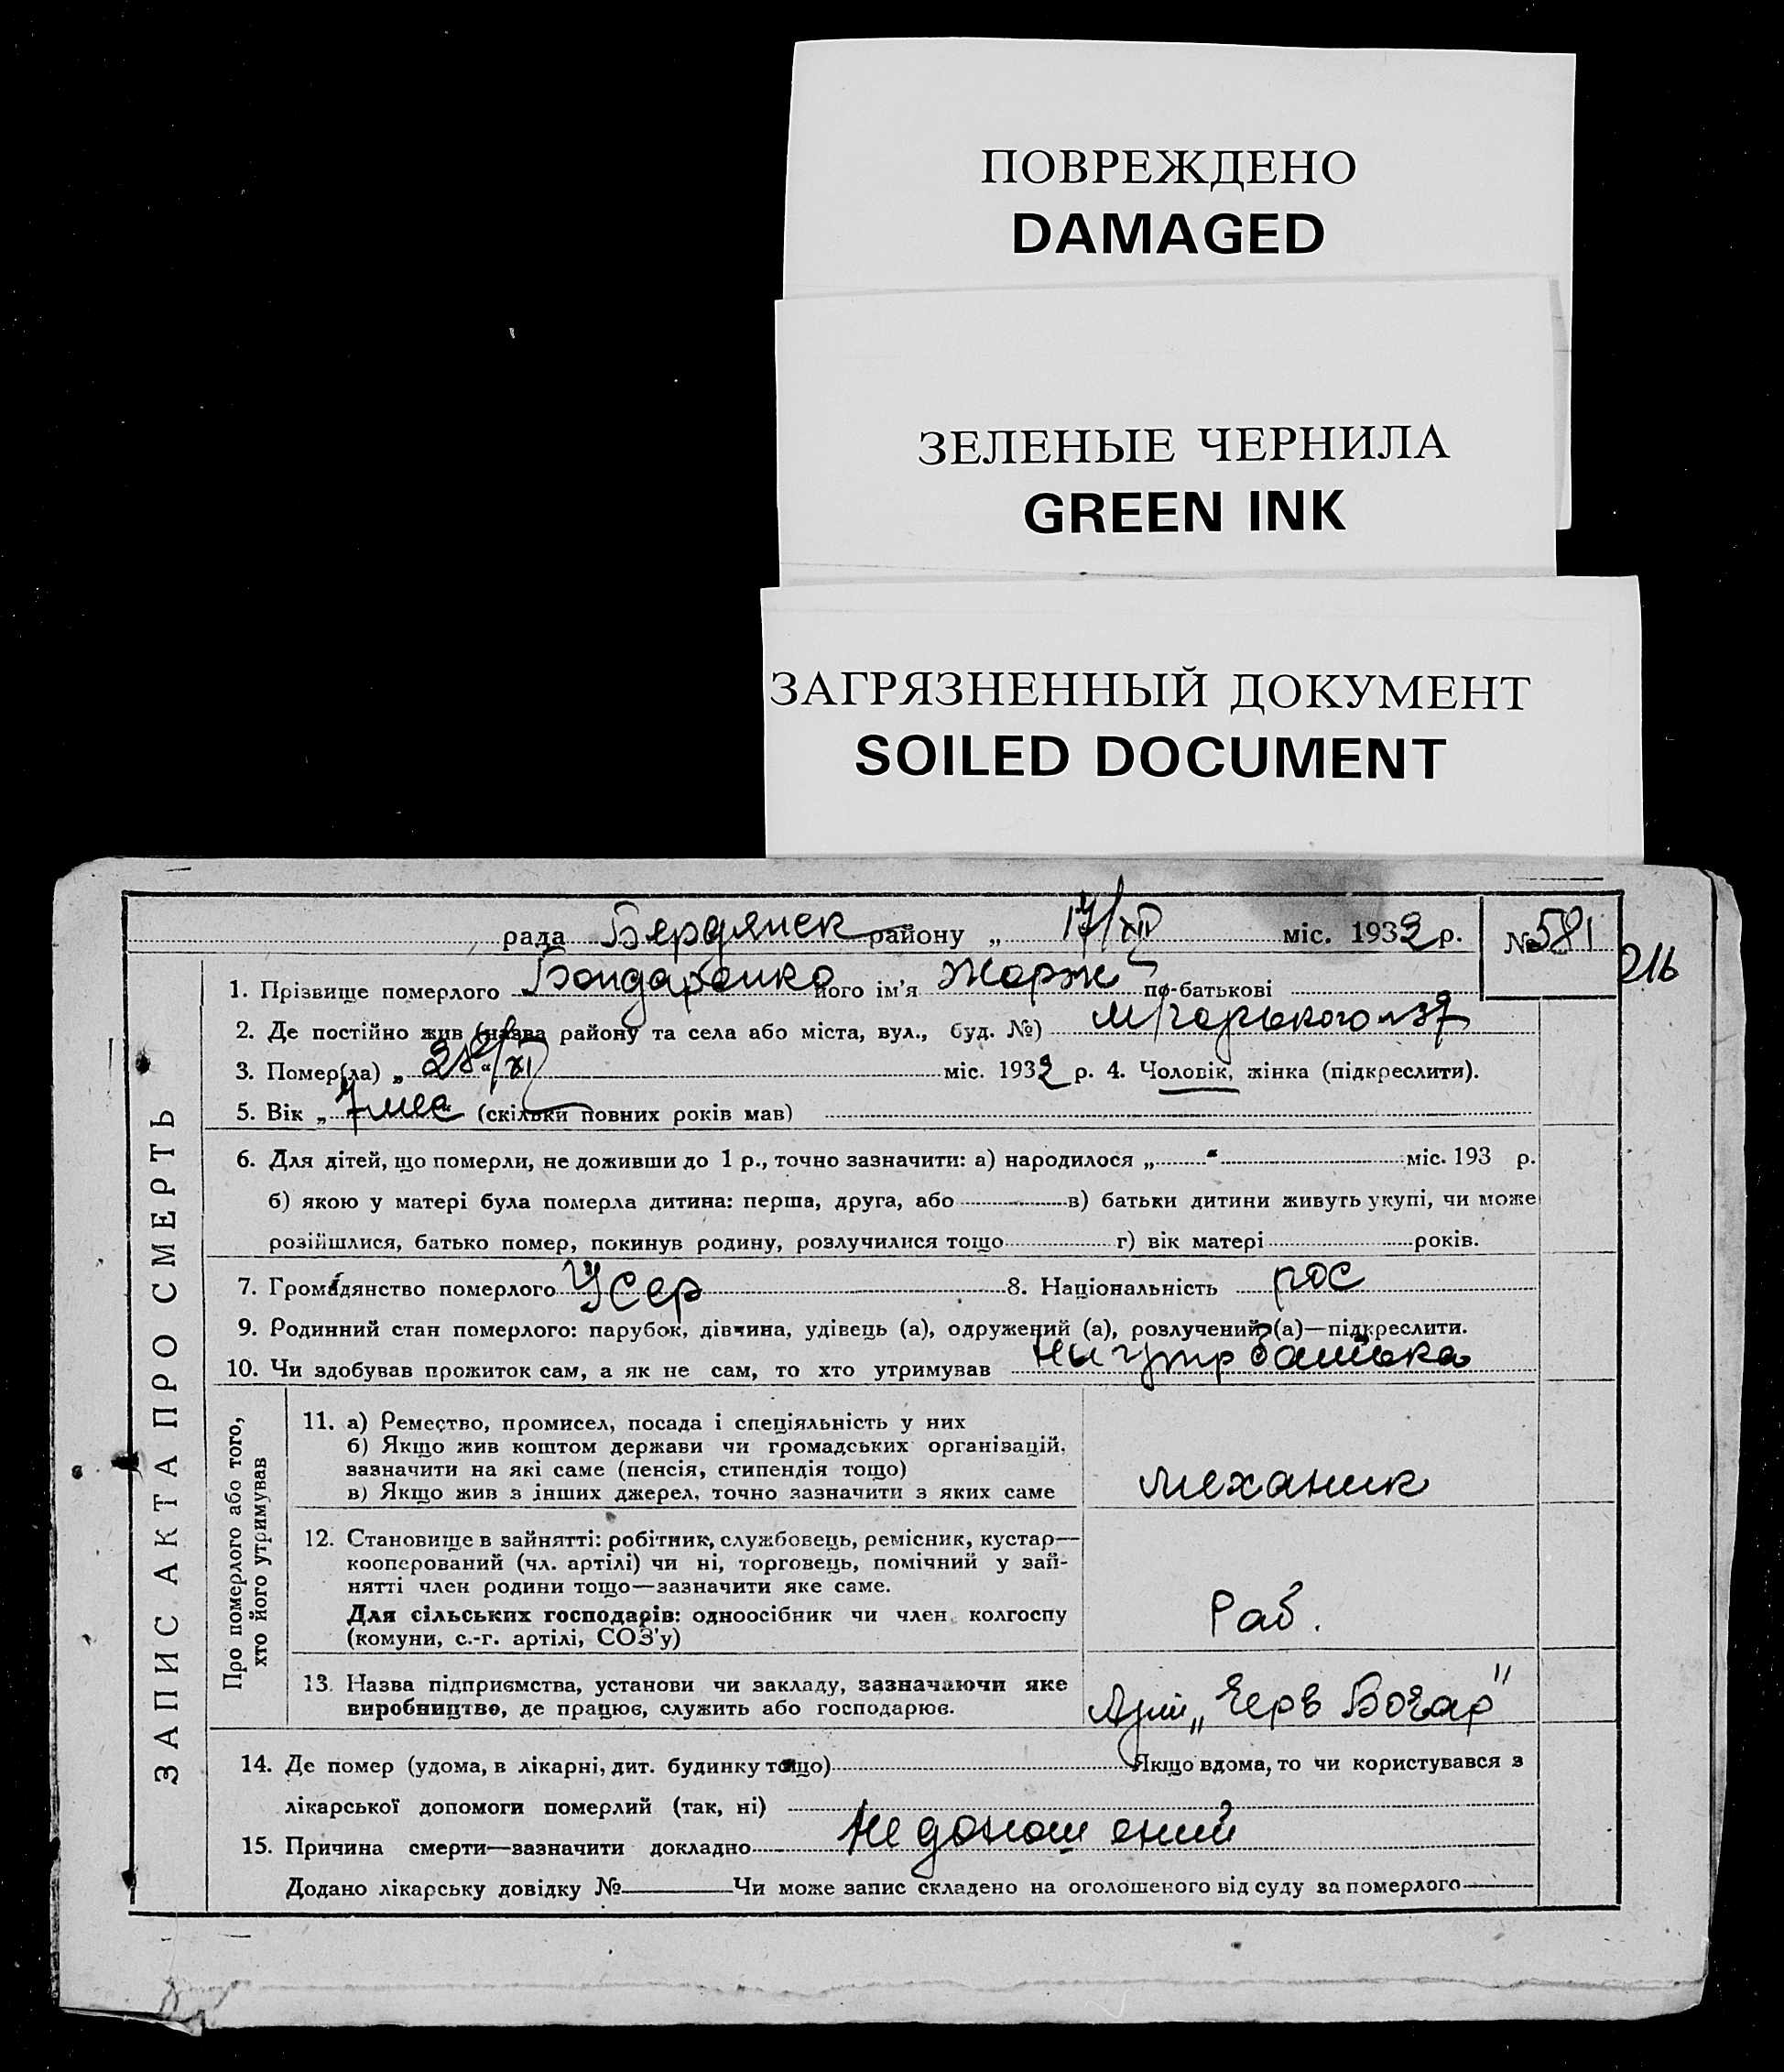 ПОВРЕЖДЕНО
DAMAGED
ЗЕЛЕНЫЕ ЧЕРНИЛА
GREEN INK
ЗАГРЯЗНЕННЫЙ ДОКУМЕНТ
SOILED DOCUMENT
рада Бердянск району „ 17/XII міс. 1932 р. № 581
216
1. Прізвище померлого Бондаренко його ім'я Жорж по-батькові
2. Де постійно жив (назва району та села або міста, вул., буд. №) М/Горького 37
3. Помер(ла) „ 28/XII міс. 1932 р. 4. Чоловік, жінка (підкреслити).
5. Вік „ 7 мес (скільки повних років мав)
6. Для дітей, що померли, не доживши до 1 р., точно зазначити: а) народилося „ “ міс. 193 р.
б) якою у матері була померла дитина: перша, друга, або в) батьки дитини живуть укупі, чи може
розійшлися, батько помер, покинув родину, розлучилися тощо г) вік матері років.
7. Громадянство померлого УССР 8. Національність рос
9. Родинний стан померлого: парубок, дівчина, удівець (а), одружений (а), розлучений (а)—підкреслити.
10. Чи здобував прожиток сам, а як не сам, то хто утримував утр батька
ЗАПИС АКТА ПРО СМЕРТЬ
Про померлого або того, хто його утримував
11. а) Ремество, промисел, посада і спеціяльність у них
б) Якщо жив коштом держави чи громадських організацій,
зазначити на які саме (пенсія, стипендія тощо)
в) Якщо жив з інших джерел, точно зазначити з яких саме
механик
12. Становище в зайнятті: робітник, службовець, ремісник, кустар—
кооперований (чл. артілі) чи ні, торговець, помічний у зай-
нятті член родини тощо—зазначити яке саме.
Для сільських господарів: одноосібник чи член колгоспу
(комуни, с.-г. артілі, СОЗ'у)
Раб.
13. Назва підприємства, установи чи закладу, зазначаючи яке
виробництво, де працює, служить або господарює.
„Черв Вогар"
14. Де помер (удома, в лікарні, дит. будинку тощо) Якщо вдома, то чи користувався з
лікарської допомоги померлий (так, ні)
15. Причина смерти—зазначити докладно Недоношений
Додано лікарську довідку № Чи може запис складено на оголошеного від суду за померлого